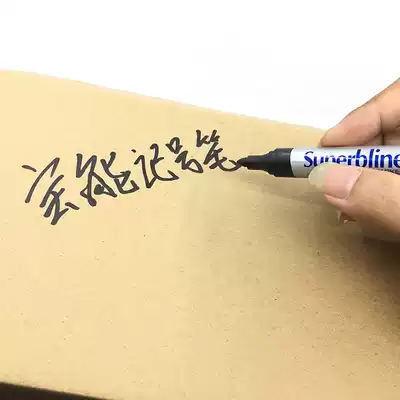 宝能记号笔
Superbline